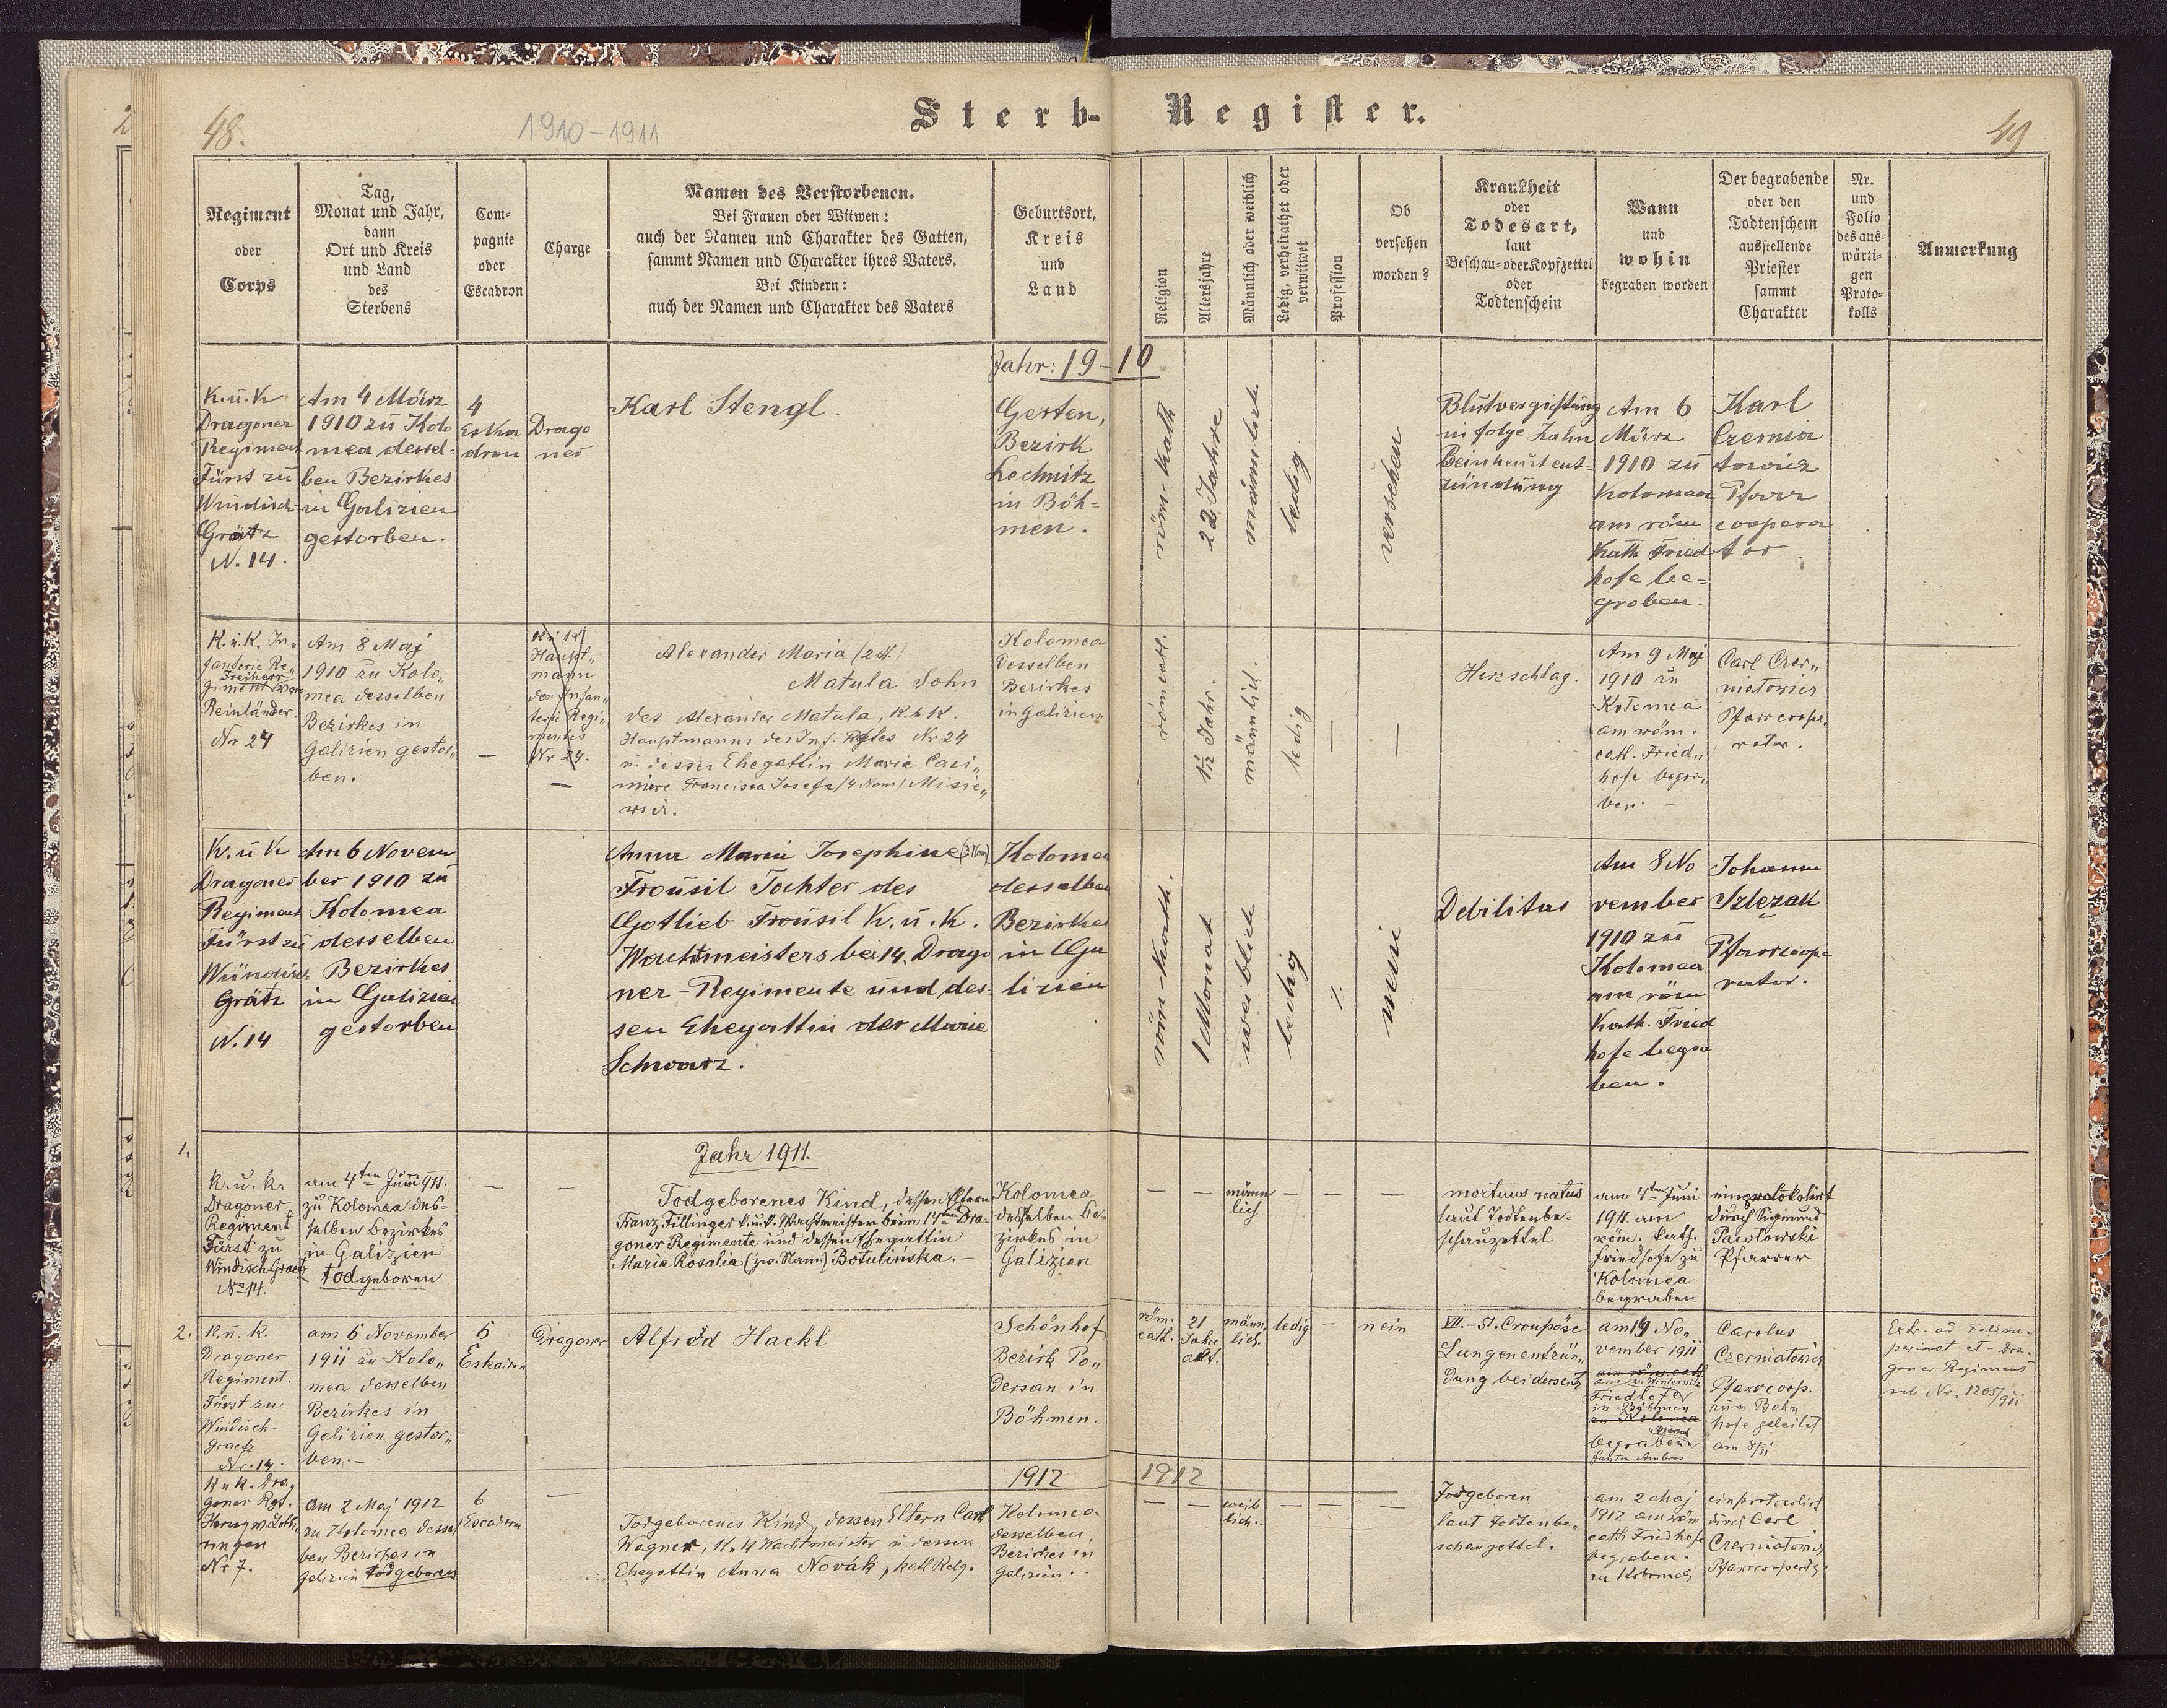 48.
1910-1911
Sterb-Register.
49
Regiment
oder
Corps
Tag,
Monat und Jahr,
dann
Ort und Kreis
und Land
des
Sterbens
Com-
pagnie
oder
Escadron
Charge
Namen des Verstorbenen.
Bei Frauen oder Witwen:
auch der Namen und Charakter des Gatten,
sammt Namen und Charakter ihres Vaters.
Bei Kindern:
auch der Namen und Charakter des Vaters
Geburtsort,
Kreis
und
Land
Religion
Altersjahre
Männlich oder weiblich
Ledig, verheirathet oder
verwitwet
Profession
Ob
versehen
worden?
Krankheit
oder
Todesart,
laut
Beschau- oder Kopfzettel
oder
Todtenschein
Wann
und
wohin
begraben worden
Der begrabende
oder den
Todtenschein
ausstellende
Priester
sammt
Charakter
Nr.
und
Folio
des aus-
wärti-
gen
Proto-
kolls
Anmerkung
Jahr: 19-10
K. u. K
Dragoner
Regiment
Fürst zu
Windisch-
Grätz
N. 14.
Am 4 März
1910 zu Kolo
mea dessel-
ben Bezirkes
in Galizien
gestorben.
4
Eska
dron
Drago
ner
Karl Stengl.
Gerten,
Bezirk
Lechnitz
in Böh-
men.
röm-kath
22 Jahre
männlich
ledig.
versehen
Blutvergiftung
in folge Zahn
Beinhautent-
zündung
Am 6
März
1910 zu
Kolomea
am röm
Kath Fried
hofe be-
graben.
Karl
Czernia
towicz
Pfarr
coopera
tor.
K. u. K. In„
fanterie Re„
giment Freiherr von
Reinländer
Nr 24
Am 8 Maj
1910 zu Kolo„
mea desselben
Bezirkes in
Galizien gestor„
ben.
—
K. u. K
Haupt„
mann
des Infan„
terie Regi„
mentes
Nr 24.
—
Alexander Maria (2 N.)
Matula Sohn
des Alexander Matula, K. u K.
Hauptmanns des Inf. Rgtes Nr 24
u. dessen Ehegattin Marie Casi„
miere Francisca Josefa (4 Nam) Misie„
wicz.
Kolomea
desselben
Bezirkes
in Galizien
röm cath.
1/2 Jahr.
männlich.
ledig
—
—
Herzschlag.
Am 9 Maj
1910 zu
Kolomea
am röm.
cath. Fried„
hofe begra„
ben. -
Carl Czer„
niatowicz
Pfarrcoope„
rator.
K. u K
Dragoner
Regiment
Fürst zu
Windisch
Grätz
N. 14
Am 6 Novem
ber 1910 zu
Kolomea
desselben
Bezirkes
in Galizien
gestorben
Anna Maria Josephine (3 Nam)
Frousil Tochter des
Gotlieb Frousil K. u. K.
Wachtmeisters bei 14. Drago
ner-Regimente und des-
sen Ehegattin der Marie
Schwarz.
Kolomea
desselben
Bezirkes
in Ga
lizien
röm-kath.
1 Monat
weiblich
ledig
nein
Debilitas
Am 8 No
vember
1910 zu
Kolomea
am röm
Kath. Fried
hofe begra
ben.
Johann
Szlęzak
Pfarrcoope
rator.
Jahr 1911.
1.
K. u. k.
Dragoner
Regiment
Fürst zu
Windisch Graetz
No 14.
am 4ten Juni 911.
zu Kolomea des-
selben Bezirkes
in Galizien
todgeboren
— —
Todgeborenes Kind, dessen Eltern
Franz Fillinger k. u. k. Wachtmeister beim 14ten Dra-
goner Regimente und dessen Ehegattin
Maria Rosalia (zw. Nam.) Botulińska. —
Kolomea
desselben Be-
zirkes in
Galizien
— —
männ
lich
— — —
mortuus natus
laut Todtenbe-
schauzettel
am 4ten Juni
1911 am
röm. kath.
Friedhofe zu
Kolomea
begraben
einprotokolirt
durch Sigmund
Pawłowski
Pfarrer
2.
K. u. k.
Dragoner
Regiment.
Fürst zu
Windisch-
Graetz
Nr. 14.
am 6 November
1911 zu Kolo„
mea desselben
Bezirkes in
Galizien gestor„
ben. -
5
Eskadron
Dragoner
Alfred Hackl
Schönhof
Bezirk Po„
dersan in
Böhmen.
röm.
cath.
21
Jahre
alt.
männ.
lich.
ledig
—
nein
VII.- 51. Croupöse
Lungenentzün„
dung beiderseits
am 14 No„
vember 1911
Friedhofe
in Böhmen
zu Kolomea
begraben
Carolus
Czerniatowicz
Pfarrcoop.
zum Bahn
hofe geleitet
am 8/11
goner Regiment
sub Nr. 1205/911
1912
1912
K u K. Dra„
goner Rgt.
Herzog v. Loth„
ringen
Nr 7.
am 2 Maj 1912
zu Kolomea dessel
ben Bezirkes in
Galizien todgeboren
6
Escadron
—
Todgeborenes Kind, dessen Eltern Carl
Wagner, K. u K Wachtmeister u dessen
Ehegattin Anna Novák, kath Relg.
Kolomea
desselben
Bezirkes in
Galizien.
— —
weib
lich.
— — —
Todgeboren
laut Todtenbe„
schauzettel.
am 2 Maj
1912 am röm
cath. Friedhofe
begraben.
zu Kolomea
einprotcolirt
durch Carl
Czerniatowicz